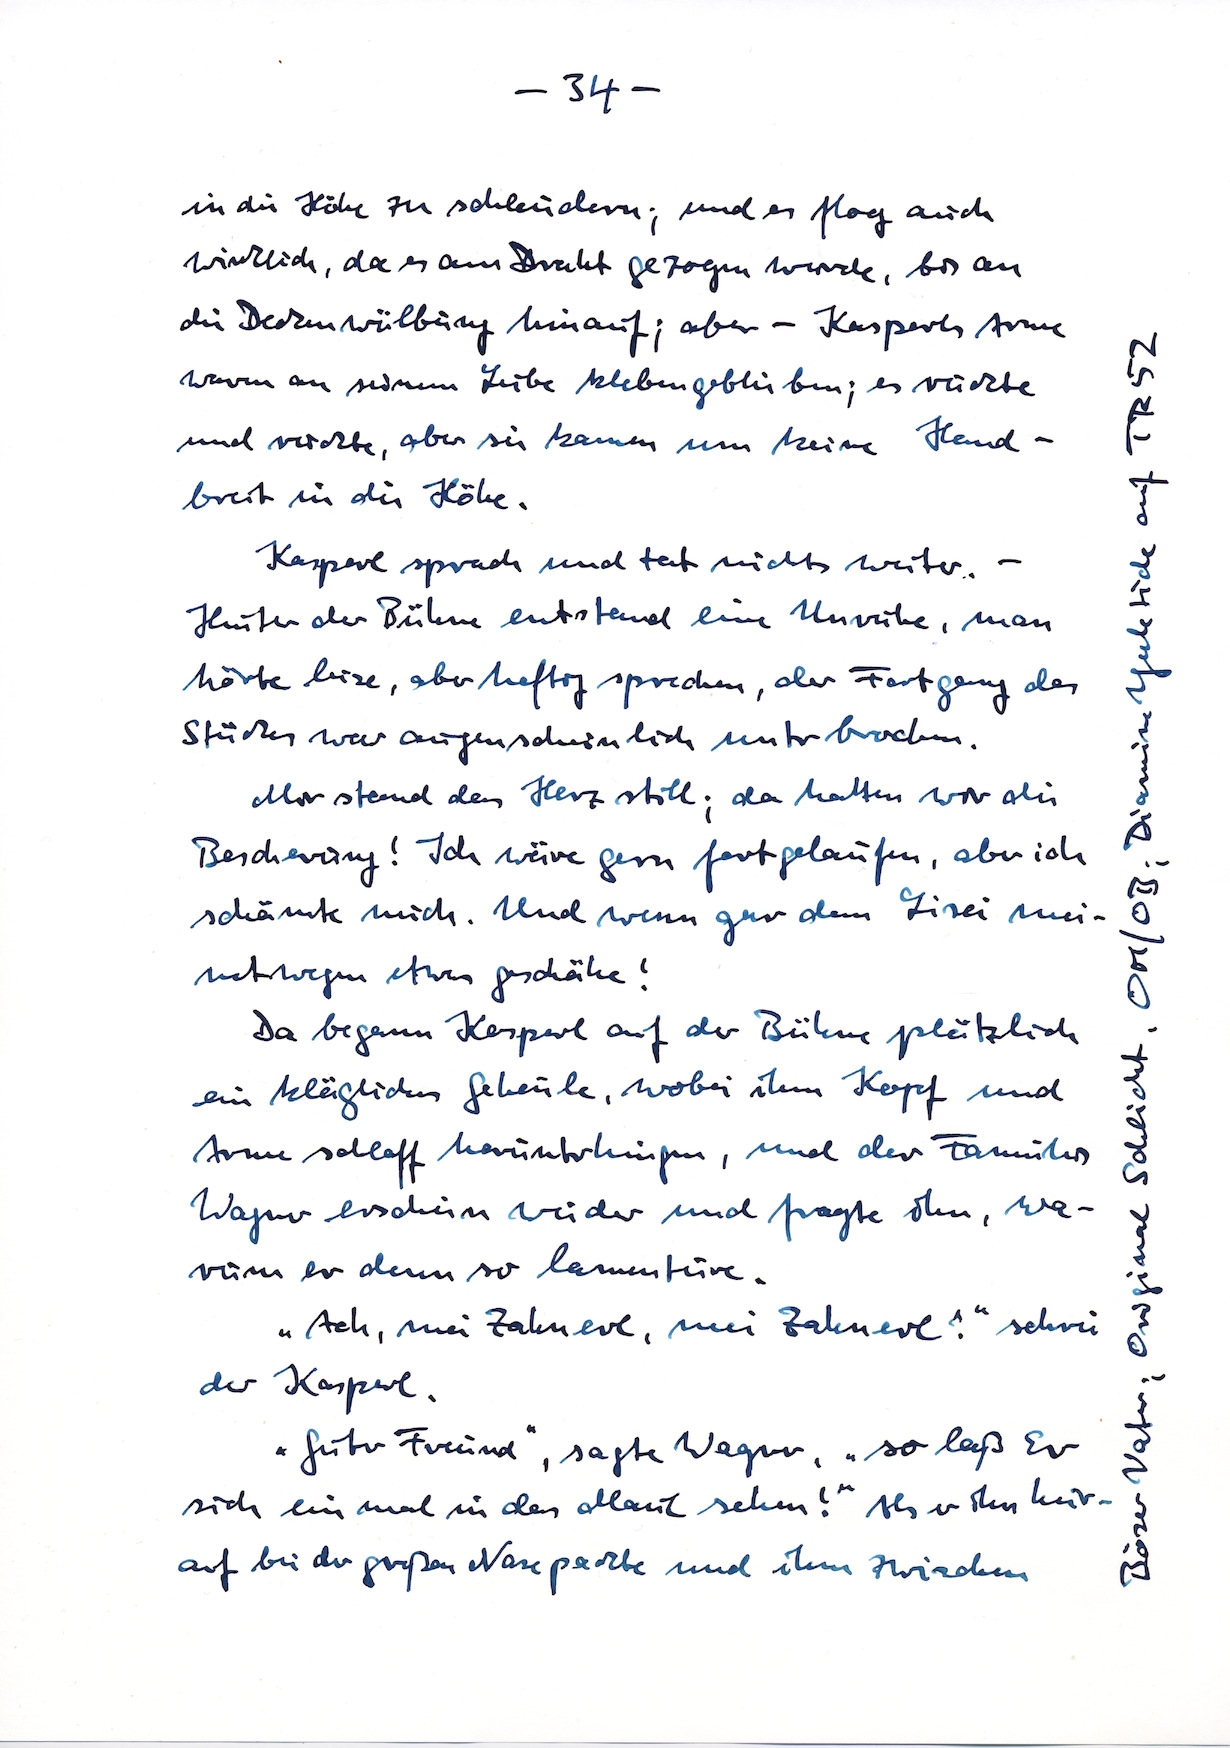 – 34 –
in die Höhe zu schleudern; und es flog auch
wirklich, da es am Draht gezogen wurde, bis an
die Deckenwölbung hinauf; aber – Kasperls Arme
waren an seinem Leibe klebengeblieben; es ruckte
und ruckte, aber sie kamen um keine Hand-
breit in die Höhe.
Kasperl sprach und tat nichts weiter. –
Hinter der Bühne entstand eine Unruhe, man
hörte leise, aber heftig sprechen, der Fortgang des
Stückes war augenscheinlich unterbrochen.
Mir stand das Herz still; da hatten wir die
Bescherung! Ich wäre gern fortgelaufen, aber ich
schämte mich. Und wenn gar dem Lisei mei-
netwegen etwas geschähe!
Da begann Kasperl auf der Bühne plötzlich
ein klägliches Geheule, wobei ihm Kopf und
Arme schlaff herunterhingen, und der Famulus
Wagner erschien wieder und fragte ihn, wa-
rum er denn so lamentiere.
„Ach, mei Zahnerl, mei Zahnerl!“ schrie
der Kasperl.
„Guter Freund“, sagte Wagner, „so laß Er
sich einmal in das Maul sehen!“ Als er ihn hier-
auf bei der großen Nase packte und ihm zwischen
Böser Vater; Original Schlicht, OM/OB; Diamine Yuletide auf TR52